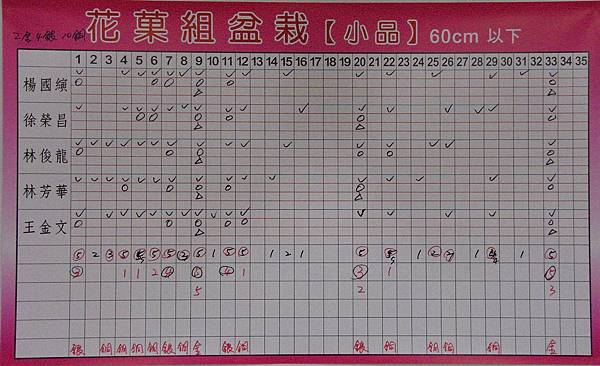 2金 4銀 10銅
花菓組盆栽【小品】60cm 以下
1 2 3 4 5 6 7 8 9 10 11 12 13 14 15 16 17 18 19 20 21 22 23 24 25 26 27 28 29 30 31 32 33 34 35
楊國縯
徐榮昌
林俊龍
林芳華
王金文
5 2 3 5 5 5 5 5 1 5 5 1 2 1 5 5 1 2 1 5
1 1 2 4 5 4 1 3 1 5
5 2 3
銀 銅 銅 銅 銅 銀 銅 金 銀 銅 銀 銅 銅 銅 銅 金